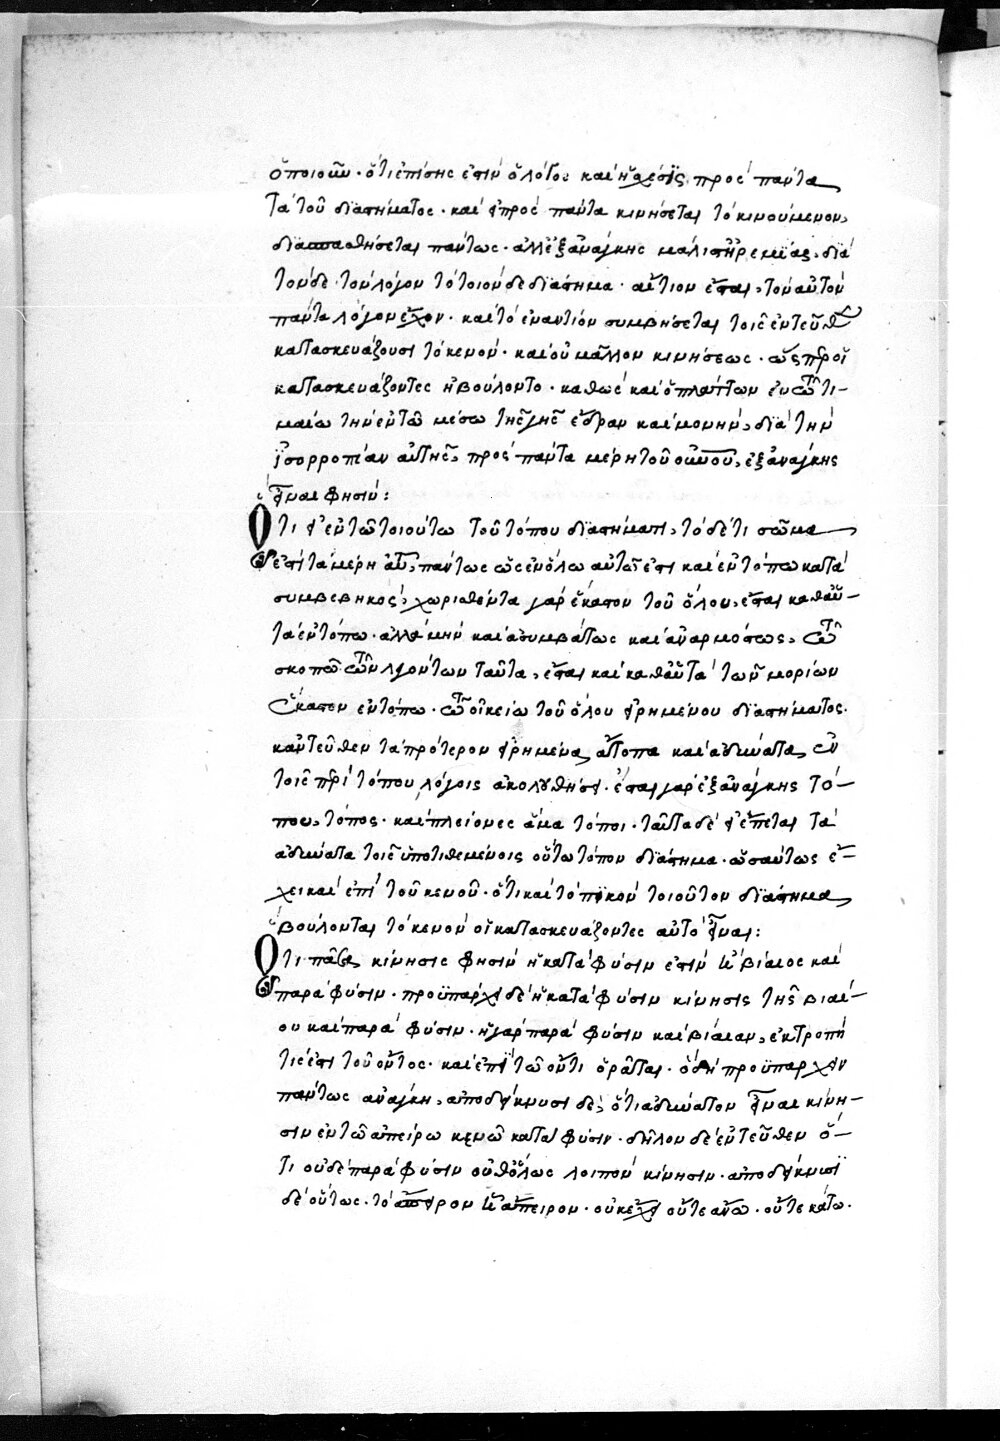 ὁποιοῦν· ὅτι ἐπίσης ἐστὶν ὁ λόγος καὶ ἡ σχέσις πρὸς πάντα
τὰ τοῦ διαστήματος· καὶ εἰ πρὸς πάντα κινήσεται τὸ κινούμενον,
διασπασθήσεται πάντως· ἀλλ' ἐξανάγκης μάλιστ' ἠρεμίας, διὰ
τόνδε τὸν λόγον τὸ τοιόνδε διάστημα· αἴτιον ἔσται, τὸν αὐτὸν
πάντα λόγον ἔχον· καὶ τὸ ἐναντίον συμβήσεται τοῖς ἐντεῦθεν
κατασκευάζουσι τὸ κενόν· καὶ οὐ μᾶλλον κινήσεως· ὥσπερ οἱ
κατασκευάζοντες ἠβούλοντο· καθὼς καὶ ὁ πλάττων ἐν τῶ τι-
μαίω τὴν ἐν τῶ μέσω τῆς γῆς ἕδραν καὶ μονὴν, διὰ τὴν
ἰσορροπίαν αὐτῆς, πρὸς πάντα μέρη τοῦ οὐρανοῦ, ἐξανάγκης
εἶναι φησίν:
Ὅτι εἰ ἐν τῶ τοιούτω τοῦ τόπου διαστήματι, τὸ δέ τι σῶμα
ἐστὶ τὰ μέρη αὐτοῦ, πάντως ὡς ἐν ὅλω αὐτῶ ἐστι καὶ ἐν τόπω κατὰ
συμβεβηκός, χωρισθέντα γὰρ ἕκαστον τοῦ ὅλου, ἔσται καθ' αὑ-
τὰ ἐν τόπω· ἀλλὰ μὴν καὶ ἀσυμβάτως καὶ ἀναρμόστως, τῶ
σκοπῶ τῶν λεγόντων ταῦτα, ἔσται καὶ καθ' αὑτὰ τῶν μορίων
ἕκαστον ἐν τόπω· τῶ οἰκείω τοῦ ὅλου εἰρημένου διαστήματος·
κἀντεῦθεν τὰ πρότερον εἰρημένα ἄτοπα καὶ ἀδύνατα, ἐν
τοῖς περὶ τόπου λόγοις ἀκολουθήσει· ἔσται γὰρ ἐξανάγκης τό-
που, τόπος· καὶ πλείονες ἅμα τόποι· ταῦτα δὲ εἰ ἕπεται τὰ
ἀδύνατα τοῖς ὑποτιθεμένοις οὕτω τόπον διάστημα· ὡσαύτως ἔ-
χει καὶ ἐπὶ τοῦ κενοῦ· ὅτι καὶ τόπικὸν τοιοῦτον διάστημα
βούλονται τὸ κενὸν οἱ κατασκευάζοντες αὐτὸ εἶναι:
Ὅτι πᾶσα κίνησις φησὶν ἢ κατὰ φύσιν ἐστὶν ἢ βίαιος καὶ
παρὰ φύσιν· προϋπάρχει δὲ ἡ κατὰ φύσιν κίνησις τῆς βιαί-
ου καὶ παρὰ φύσιν· ἡ γὰρ παρὰ φύσιν καὶ βίαιαν, ἐκτροπή
τίς ἐστι τοῦ ὄντος· καὶ ἐπὶ τῶ ὄντι ὁρᾶται· ὃ δεῖ προϋπάρχειν
πάντως ἀνάγκη, ἀποδείκνυσι δὲ, ὅτι ἀδύνατον εἶναι κίνη-
σιν ἐν τῶ ἀπείρω κενῶ κατὰ φύσιν· δῆλον δὲ ἐντεῦθεν ὅ-
τι οὐδὲ παρὰ φύσιν οὐθ' ὅλως λοιπὸν κίνησιν· ἀποδείκνυσι
δὲ οὕτως· τὸ ἄπειρον ᾗ ἄπειρον· οὐκ ἔχει οὔτε ἄνω· οὔτε κάτω·